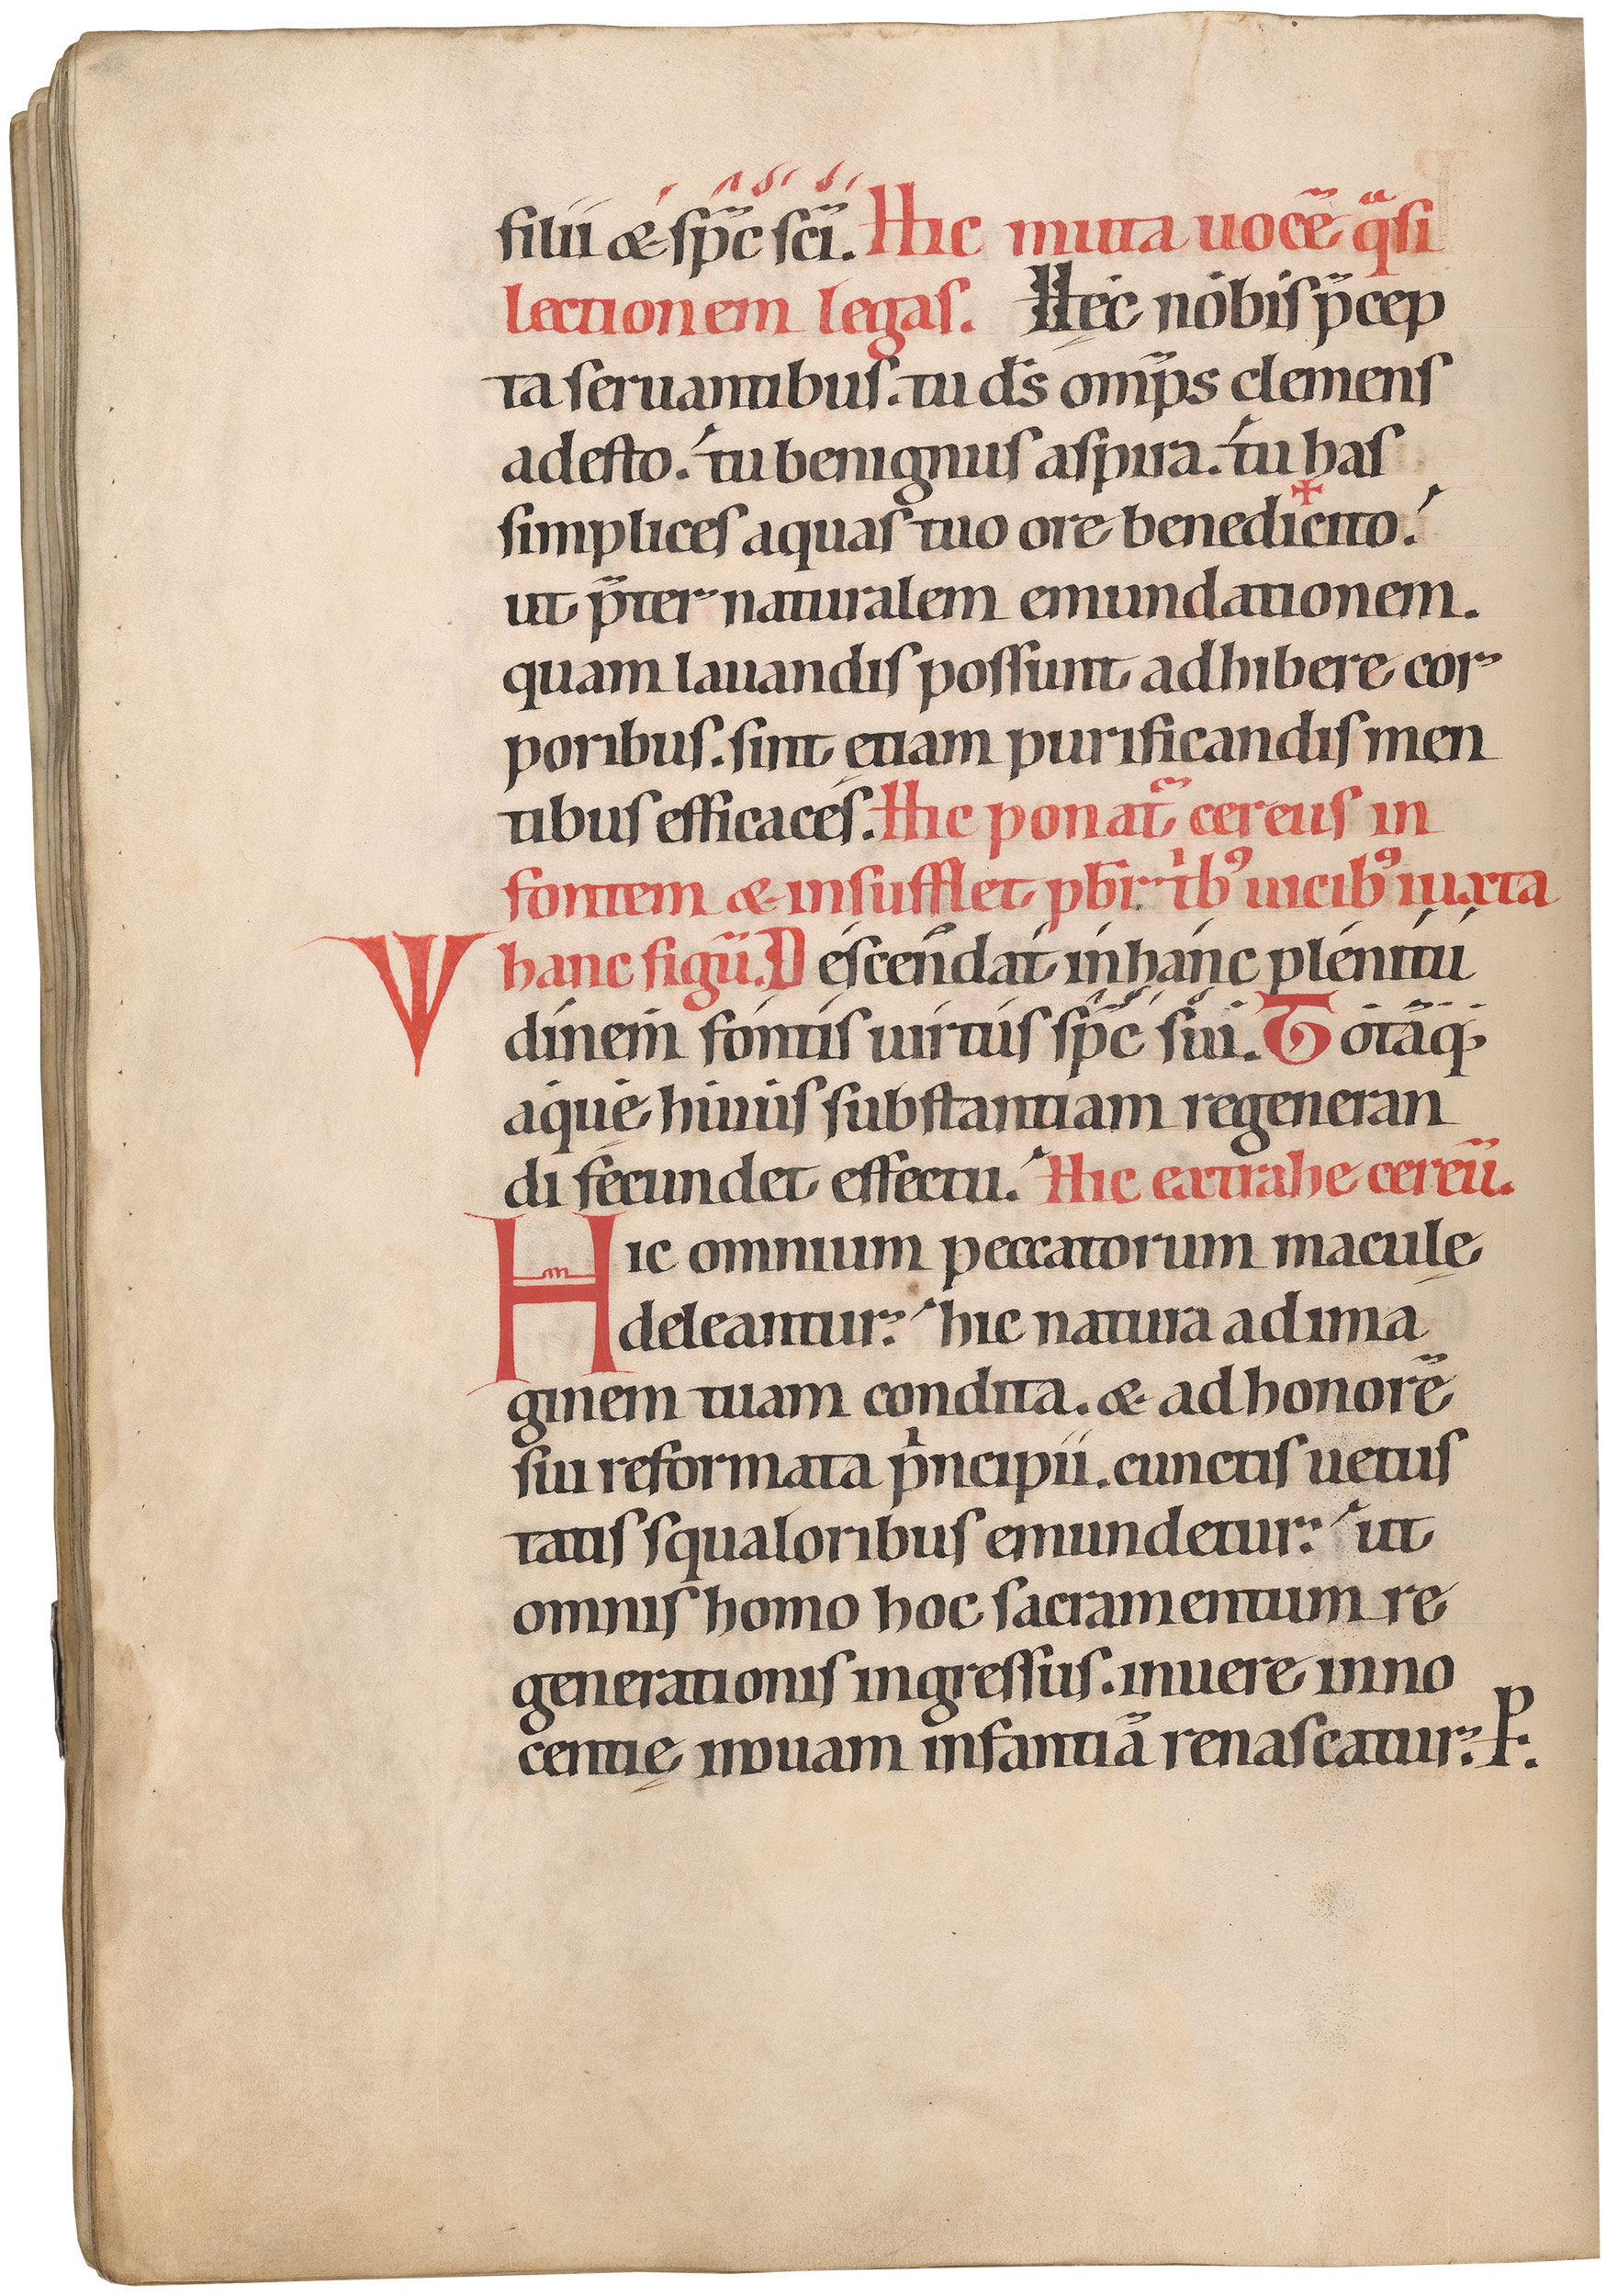 filii & sp̅c sc̅i. Hic muta uoce̅ qᵃsi
lectionem legas. Hęc nobis p̅cep
ta seruantibus. tu d̅s omp̅s clemens
adesto. tu benignus aspira. tu has
simplices aquas tuo ore benedi✝cito.
ut p̅ter naturalem emundationem.
quam lauandis possunt adhibere cor
poribus. sint ętiam purificandis men
tibus efficaces. Hic ponat᷑ cereus in
fontem & insufflet pb̅r tⁱbꝰ uicibꝰ iuxta
hanc figu̅. Descendat in hanc plenitu
Ψ
dinem fontis uirtus sp̅c sui. Tota̅q;
aquę huius substantiam regeneran
di fęcundet effectu. Hic extrahe cereu̅.
Hic omnium peccatorum maculę
deleantur. hic natura ad ima
ginem tuam condita. & ad honore̅
sui reformata pⁱncipii. cunctis uetus
tatis squaloribus emundetur. ut
omnis homo hoc sacramentum re
generationis ingressus. in uere inno
centię nouam infantia̅ renascatur. P.